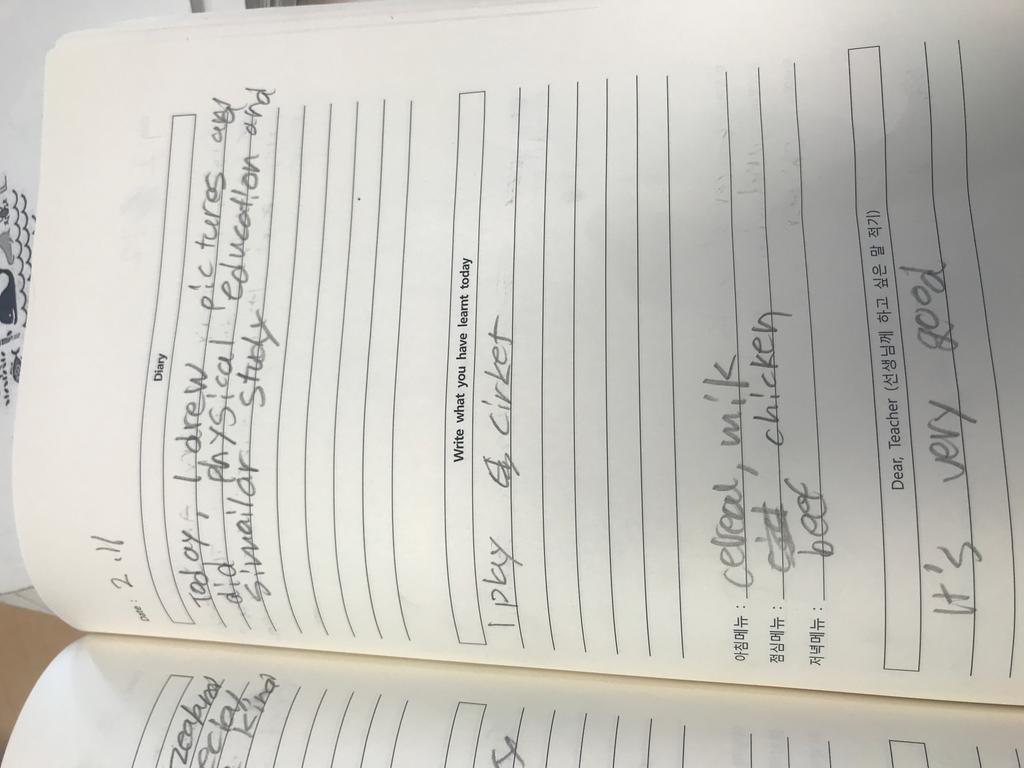 Date : 2. 11
Diary
Today, I drew pictures and
did physical education and
simailar study
Write what you have learnt today
I play cirket
아침메뉴 : cereal, milk
점심메뉴 : chicken
저녁메뉴 : beef
Dear, Teacher (선생님께 하고 싶은 말 적기)
It's very good
kind